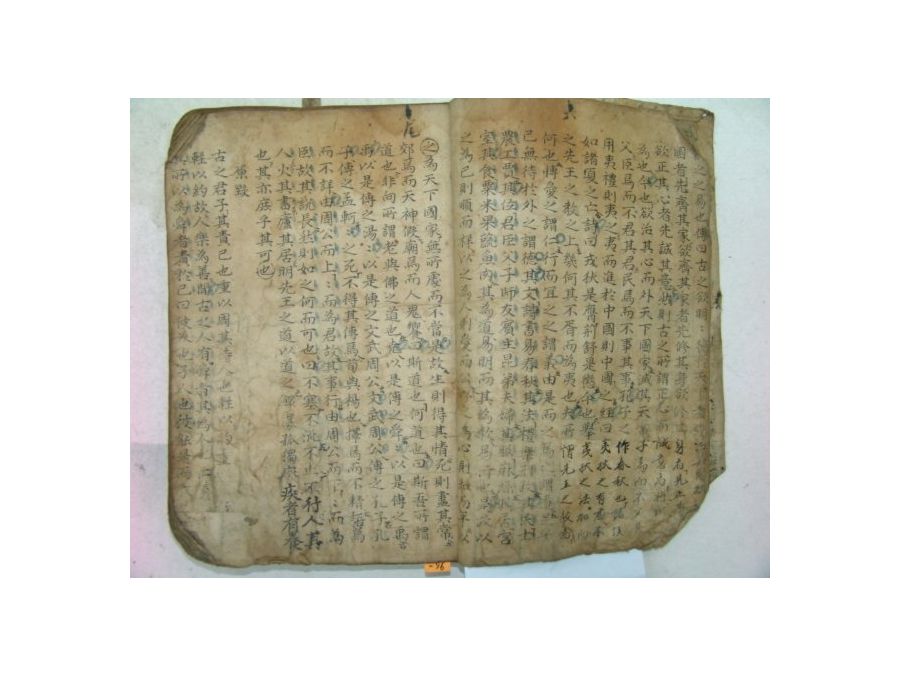 之之易也傳曰古之欲明
國者先齊其家欲齊其家者先修其身欲修其身者先正其
欲正其心者先誠其意然則古之所謂正心而誠意者將
為也今也欲治其心而外天下國家滅其天常子焉而不父其
父臣焉而不君其君民焉而不事其事孔子之作春秋也諸侯
用夷禮則夷之夷而進於中國則中國之經曰夷狄之有君不
如諸夏之亡詩曰戎狄是膺荊舒是懲今也舉夷狄之法而加
之先王之教之上幾何其不胥而為夷也夫所謂先王之教者
何也博愛之謂仁行而宜之之謂義由是而之焉之謂道足乎
已無待於外之謂德其文詩書易春秋其法禮樂刑政其民士
農工賈其位君臣父子師友賓主昆弟夫婦其服麻絲其居宮
室其食粟米果蔬魚肉其為道易明而其為教易行也是故以
之為己則順而祥以之為人則愛而公以之為心則和而平以
之為天下國家無所處而不當是故生則得其情死則盡其常
郊焉而天神假廟焉而人鬼饗曰斯道也何道也曰斯吾所謂
道也非向所謂老與佛之道也堯以是傳之舜舜以是傳之禹禹
以是傳之湯湯以是傳之文武周公文武周公傳之孔子孔
子傳之孟軻軻之死不得其傳焉荀與楊也擇焉而不精語焉
而不詳由周公而上上而為君故其事行由周公而下下而為
臣故其說長然則如之何而可也曰不塞不流不止不行人其
人火其書廬其居明先王之道以道之鰥寡孤獨廢疾者有養
也其亦庶乎其可也
原毀
古之君子其責己也重以周其待人也輕以約重
輕以約故人樂為善聞古之人有舜者其為人